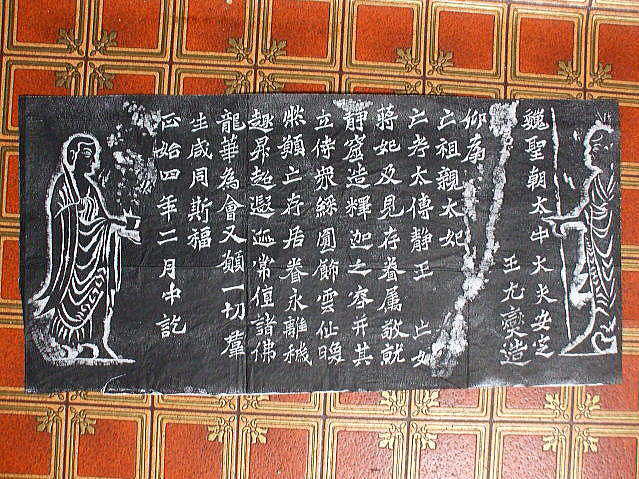 魏聖朝太中大夫安定
王元燮造
仰為
亡祖親太妃
亡考太傅靜王 亡妣
蔣妃及見存眷属敬就
靜窟造釋迦之容并其
立侍衆綵圓飾雲仙煥
然願亡存居眷永離穢
趣昇超遐迩常值諸佛
龍華為會又願一切羣
生咸同斯福
正始四年二月中訖